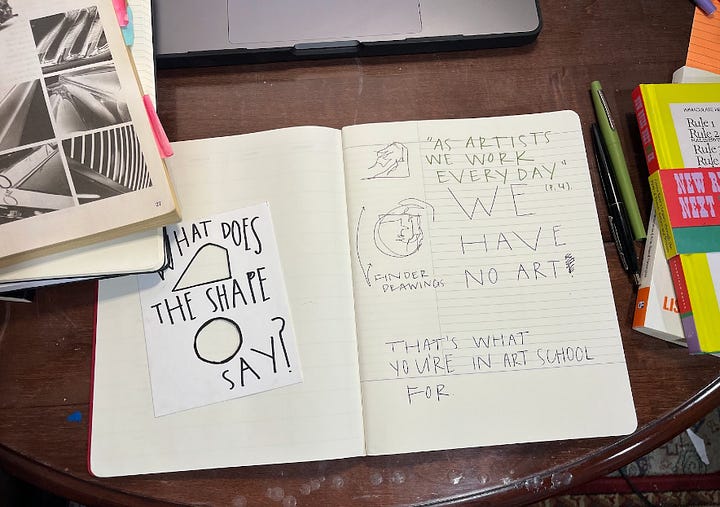 WHAT DOES
THE SHAPE
SAY?
"AS ARTISTS
WE WORK
EVERY DAY"
(P. 4).
WE
HAVE
NO ART?
FINDER
DRAWINGS
THAT'S WHAT
YOU'RE IN ART SCHOOL
FOR
Rule 1
Rule 2
Rule
NEXT
LIS